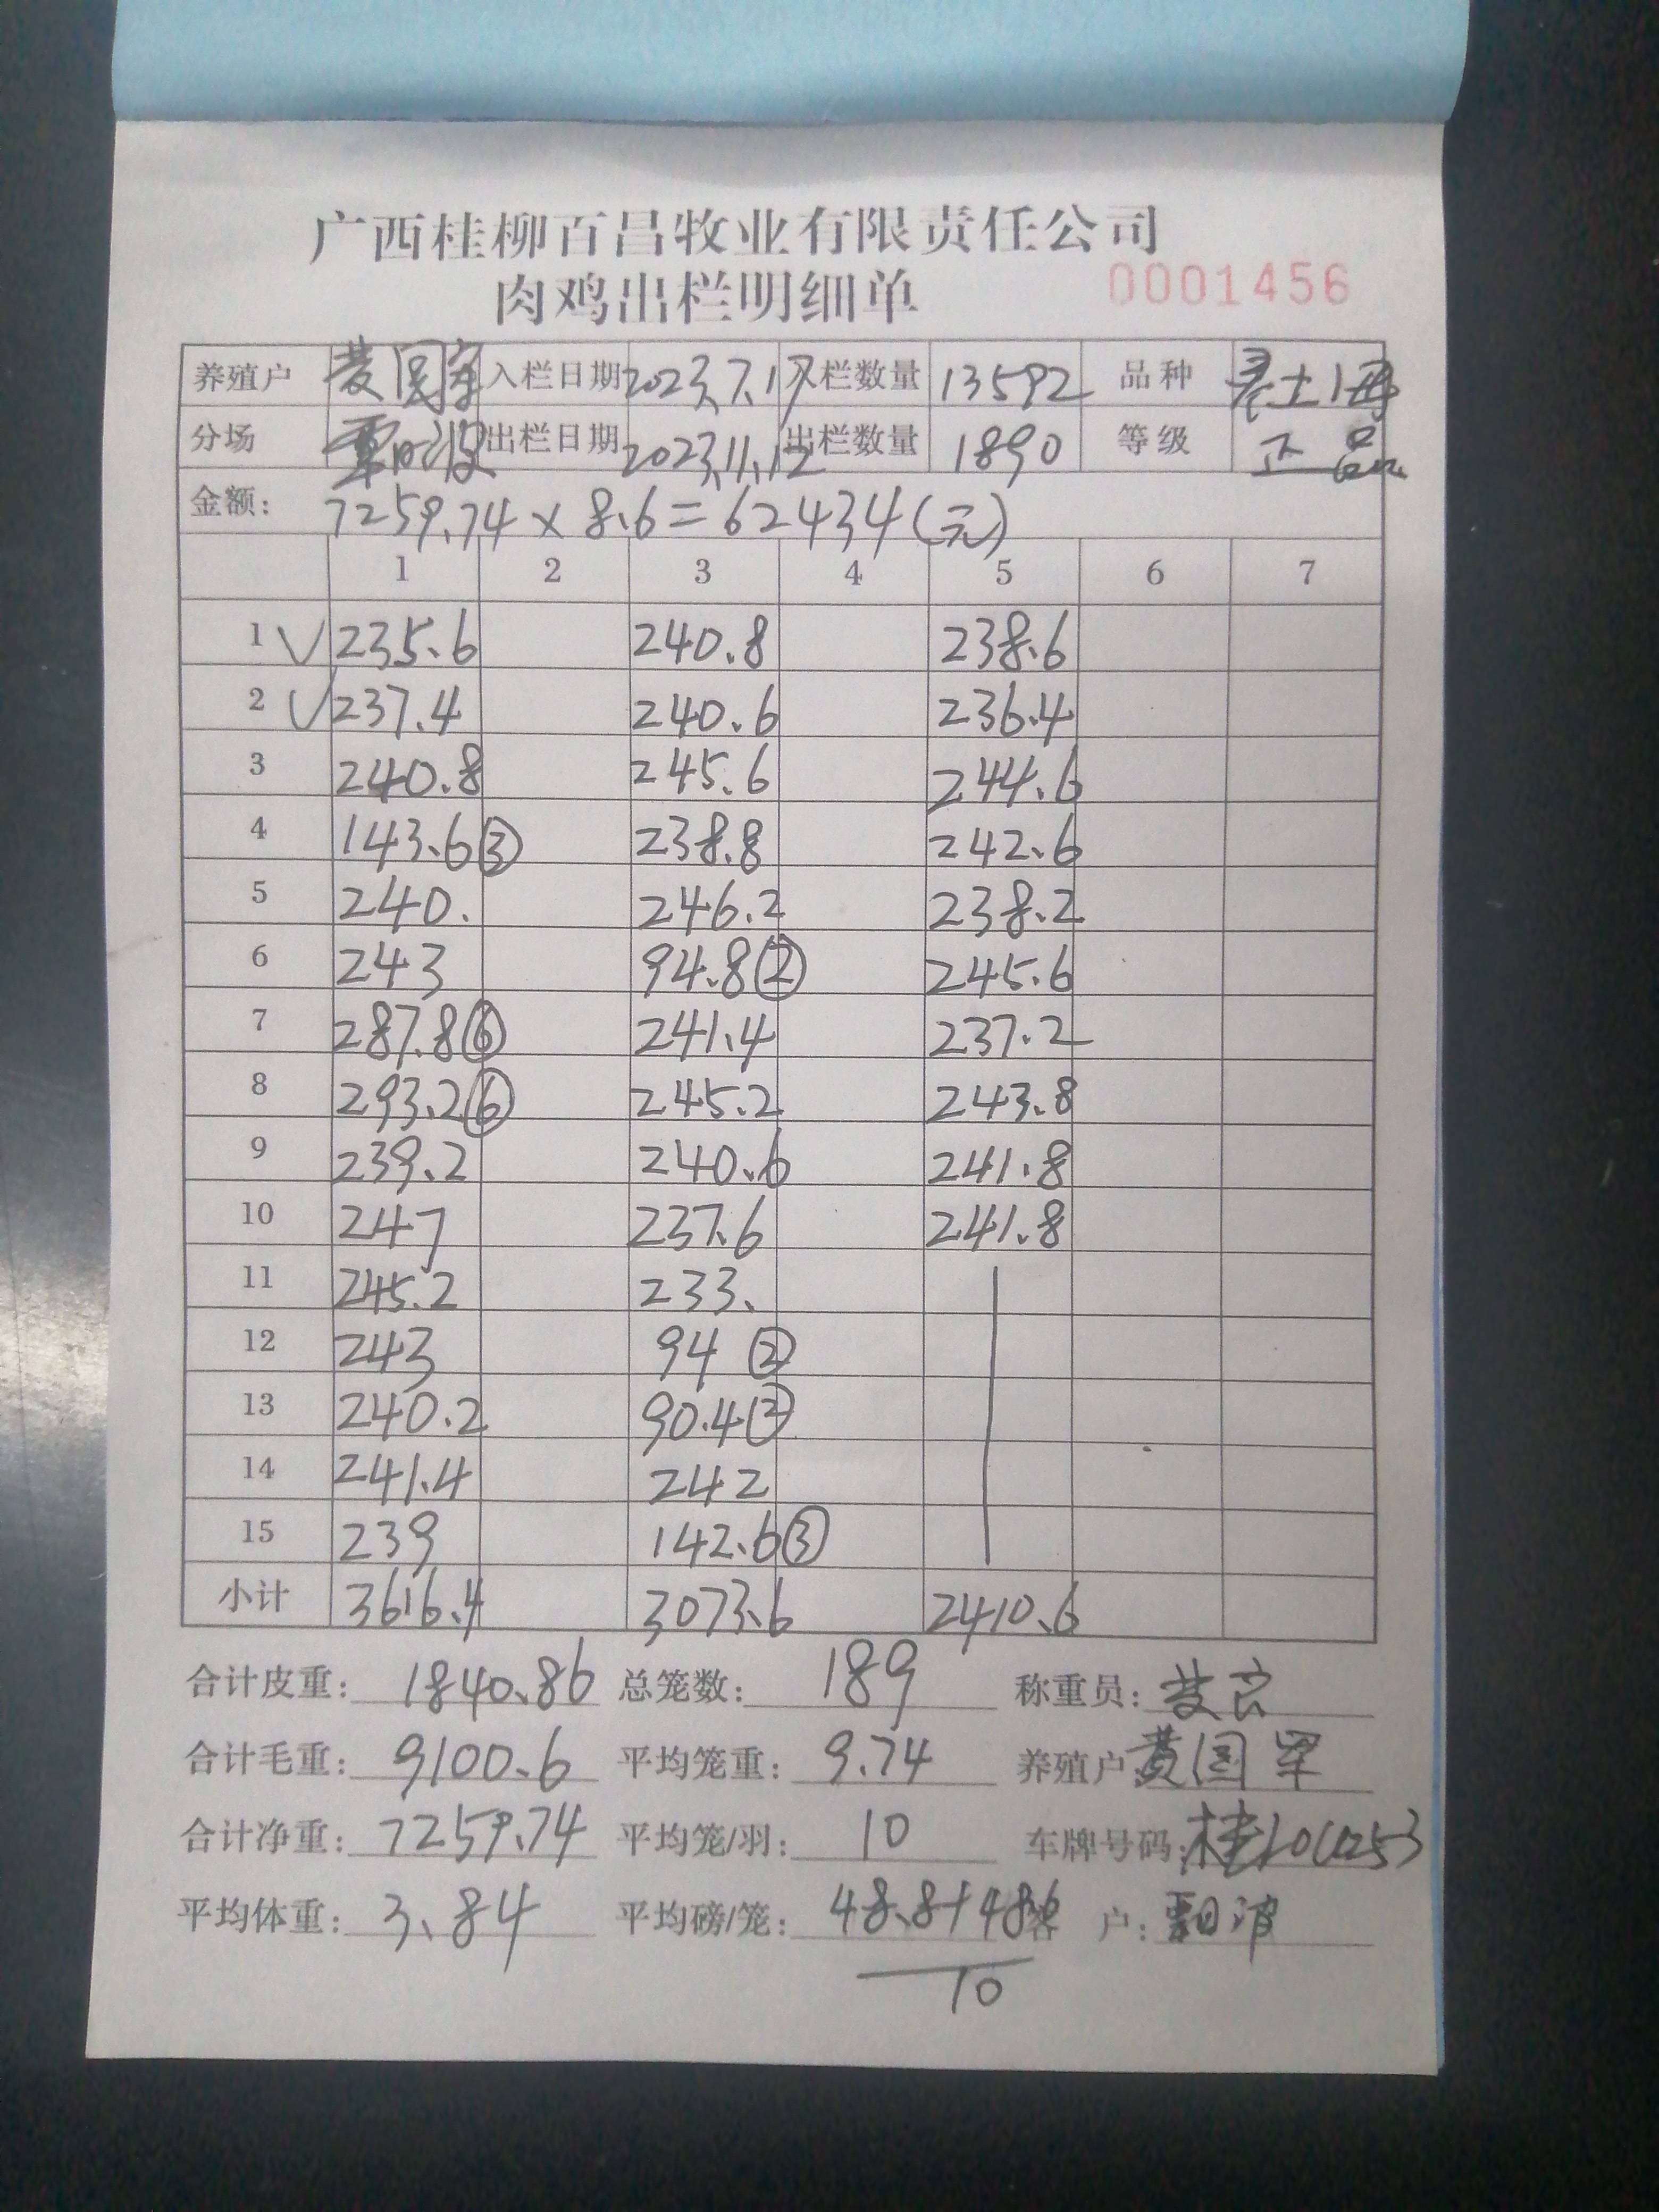 广西桂柳百昌牧业有限责任公司
肉鸡出栏明细单 0001456
养殖户 黄国军 入栏日期 2023.7.17 入栏数量 13592 品种
分场 出栏日期 2023.11.12 出栏数量 1890 等级 正品
金额: 7259.74×8.6=62434(元)
1 2 3 4 5 6 7
1 √ 235.6 240.8 238.6
2 √ 237.4 240.6 236.4
3 240.8 245.6 244.6
4 143.6③ 238.8 242.6
5 240. 246.2 238.2
6 243 94.8② 245.6
7 287.8⑥ 241.4 237.2
8 293.2⑥ 245.2 243.8
9 239.2 240.6 241.8
10 247 237.6 241.8
11 245.2 233.
12 243 94 ②
13 240.2 90.4②
14 241.4 242
15 239 142.6③
小计 3616.4 3073.6 2410.6
合计皮重: 1840.86 总笼数: 189 称重员:
合计毛重: 9100.6 平均笼重: 9.74 养殖户: 黄国军
合计净重: 7259.74 平均笼/羽: 10 车牌号码:
平均体重: 3.84 平均磅/笼: 48.8+48.6 客户:
10